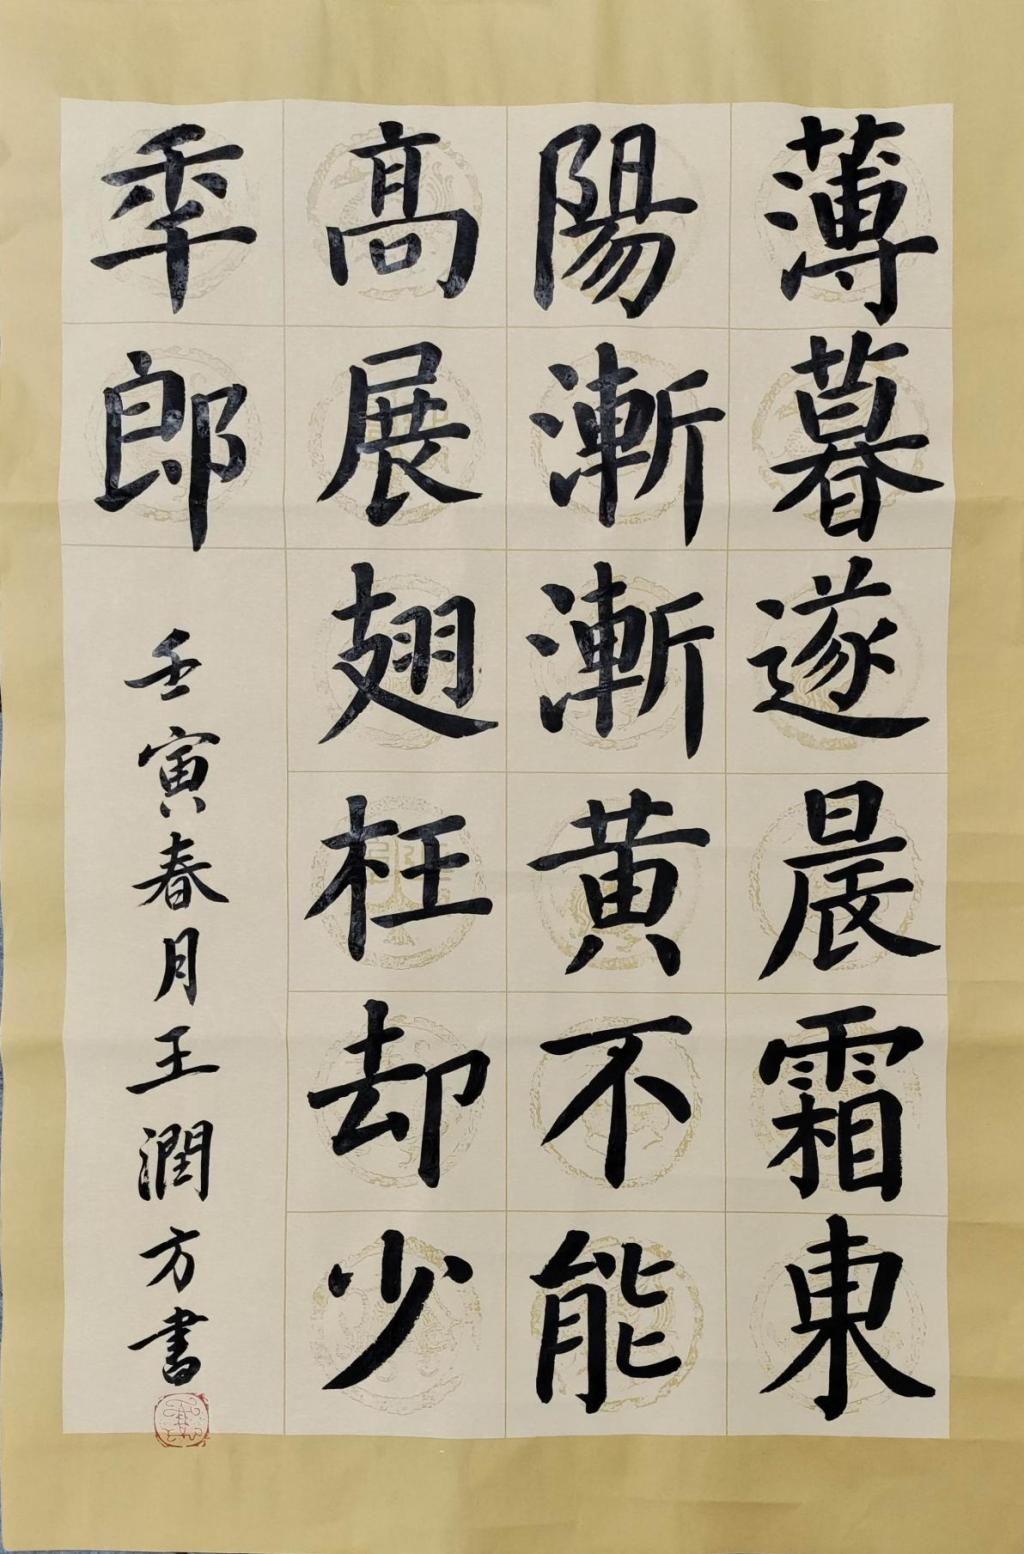 薄暮遂晨霜東
陽漸漸黄不能
高展翅枉却少
年郎
壬寅春月王潤方書